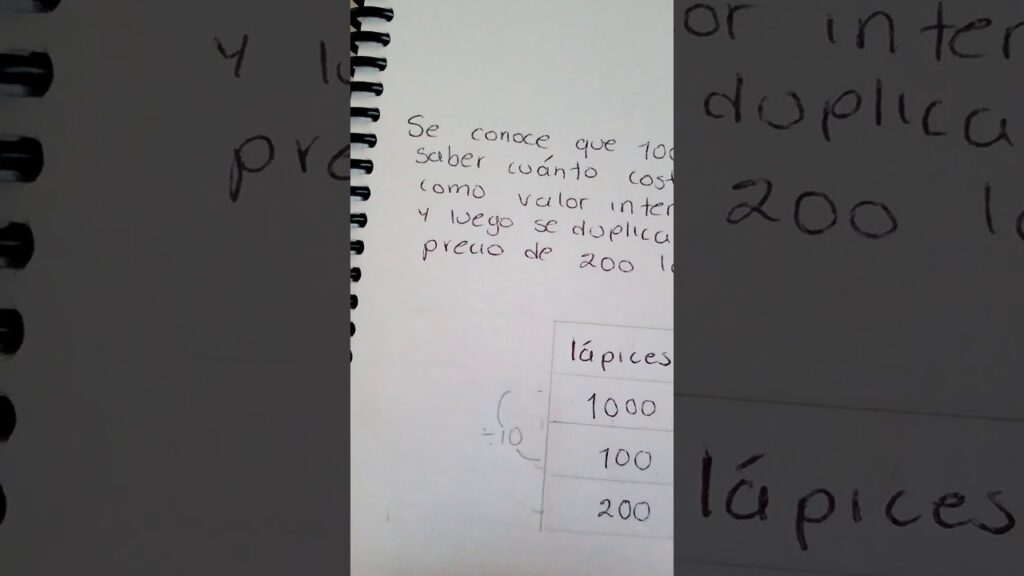 Se conoce que 100
saber cuánto cost
como valor inter
y luego se duplica
precio de 200 l
lápices
1000
÷10
100
200